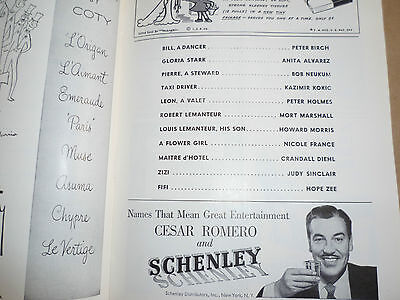 COTY
L'Origan
L'Aimant
Emeraude
'Paris'
Muse
Asuma
Chypre
Le Vertige
BILL, A DANCER PETER BIRCH
GLORIA STARK ANITA ALVAREZ
PIERRE, A STEWARD BOB NEUKUM
TAXI DRIVER KAZIMIR KOKIC
LEON, A VALET PETER HOLMES
ROBERT LEMANTEUR MORT MARSHALL
LOUIS LEMANTEUR, HIS SON HOWARD MORRIS
A FLOWER GIRL NICOLE FRANCE
MAITRE d'HOTEL CRANDALL DIEHL
ZIZI JUDY SINCLAIR
FIFI HOPE ZEE
Names That Mean Great Entertainment
CESAR ROMERO
and
SCHENLEY
Schenley Distributors, Inc., New York, N. Y.